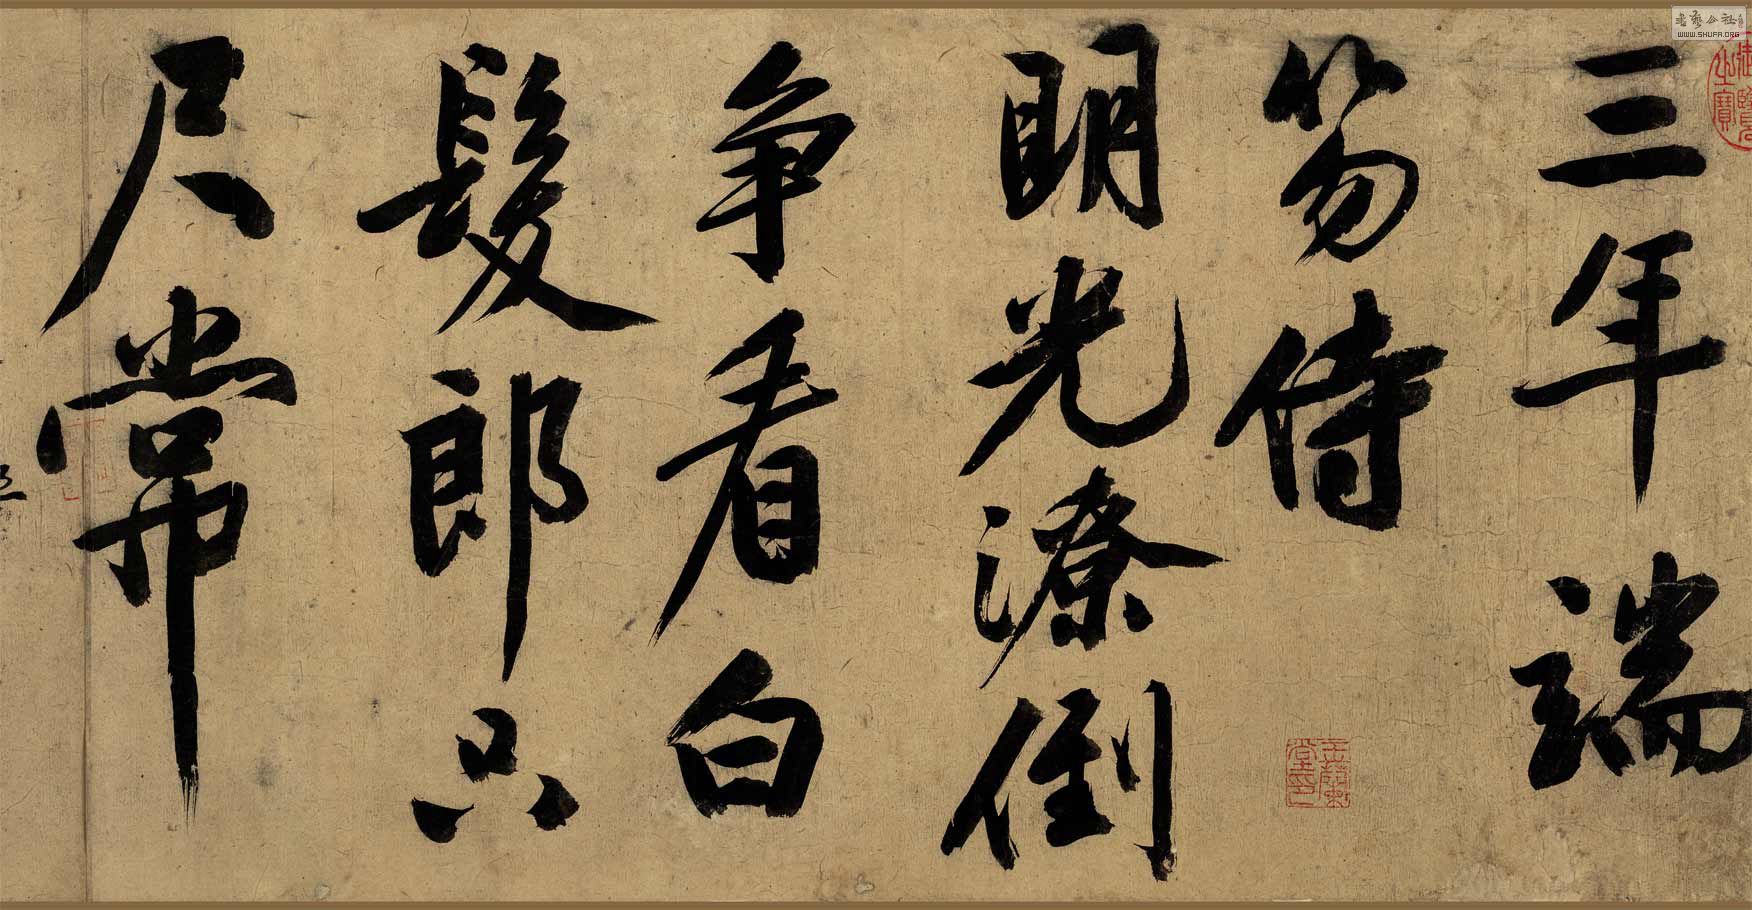 三年端
笏侍
明光潦倒
争看白
髮郎只
尺常
WWW.SHUFA.ORG